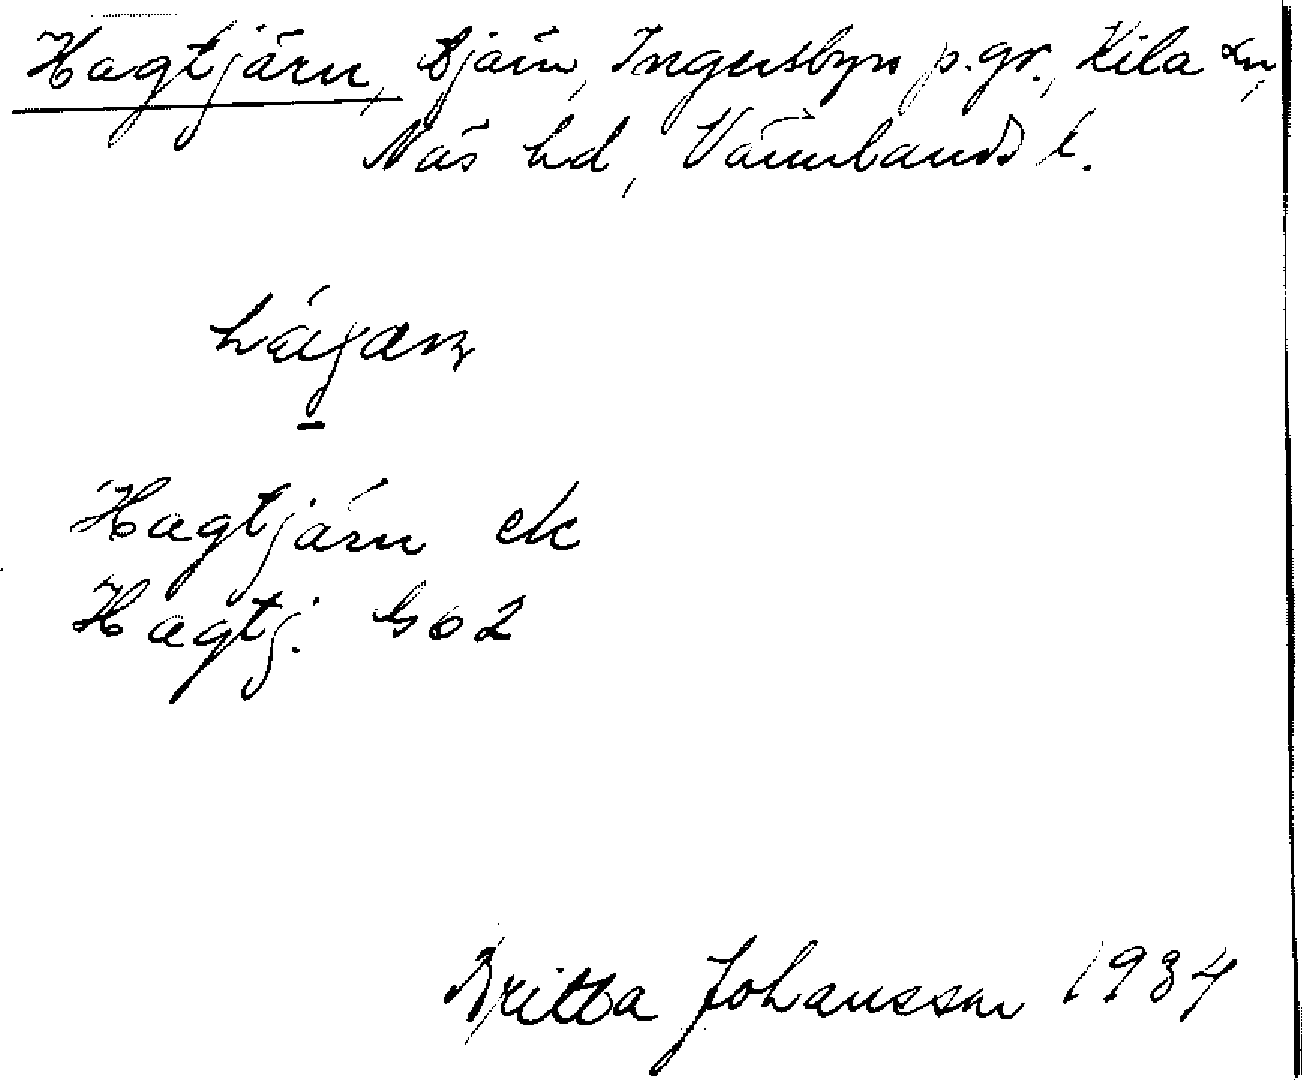 Hagtjärn, tjärn, Ingersbyn p.gr., Kila sn,
Näs hd, Värmlands l.
Hagtjärn ek
Hagtj. GO2
Britta Johansson 1934